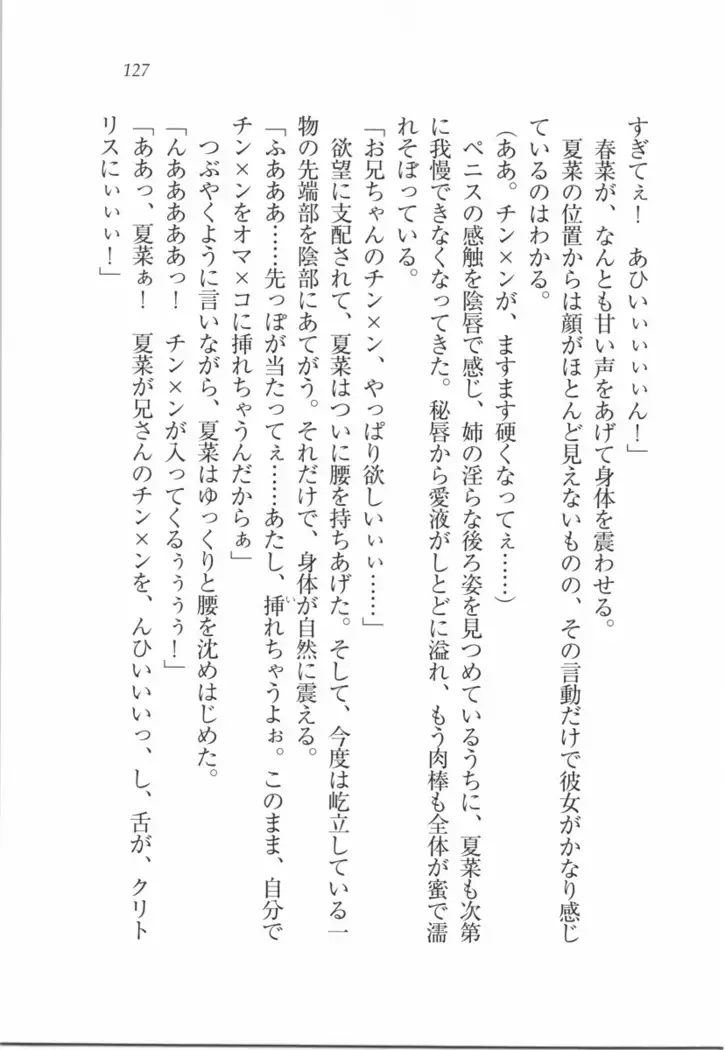 127
すぎてぇ！　あひいぃぃぃぃん！」
春菜が、なんとも甘い声をあげて身体を震わせる。
夏菜の位置からは顔がほとんど見えないものの、その言動だけで彼女がかなり感じ
ているのはわかる。
（ああ。チン×ンが、ますます硬くなってぇ……）
ペニスの感触を陰唇で感じ、姉の淫らな後ろ姿を見つめているうちに、夏菜も次第
に我慢できなくなってきた。秘唇から愛液がしとどに溢れ、もう肉棒も全体が蜜で濡
れそぼっている。
「お兄ちゃんのチン×ン、やっぱり欲しいぃぃ……」
欲望に支配されて、夏菜はついに腰を持ちあげた。そして、今度は屹立している一
物の先端部を陰部にあてがう。それだけで、身体が自然に震える。
「ふあああ……先っぽが当たってぇ……あたし、挿れちゃうよぉ。このまま、自分で
チン×ンをオマ×コに挿れちゃうんだからぁ」
つぶやくように言いながら、夏菜はゆっくりと腰を沈めはじめた。
「んああああぁっ！　チン×ンが入ってくるぅぅぅぅ！」
「ああっ、夏菜ぁ！　夏菜が兄さんのチン×ンを、んひいいいっ、し、舌が、クリト
リスにぃぃぃ！」